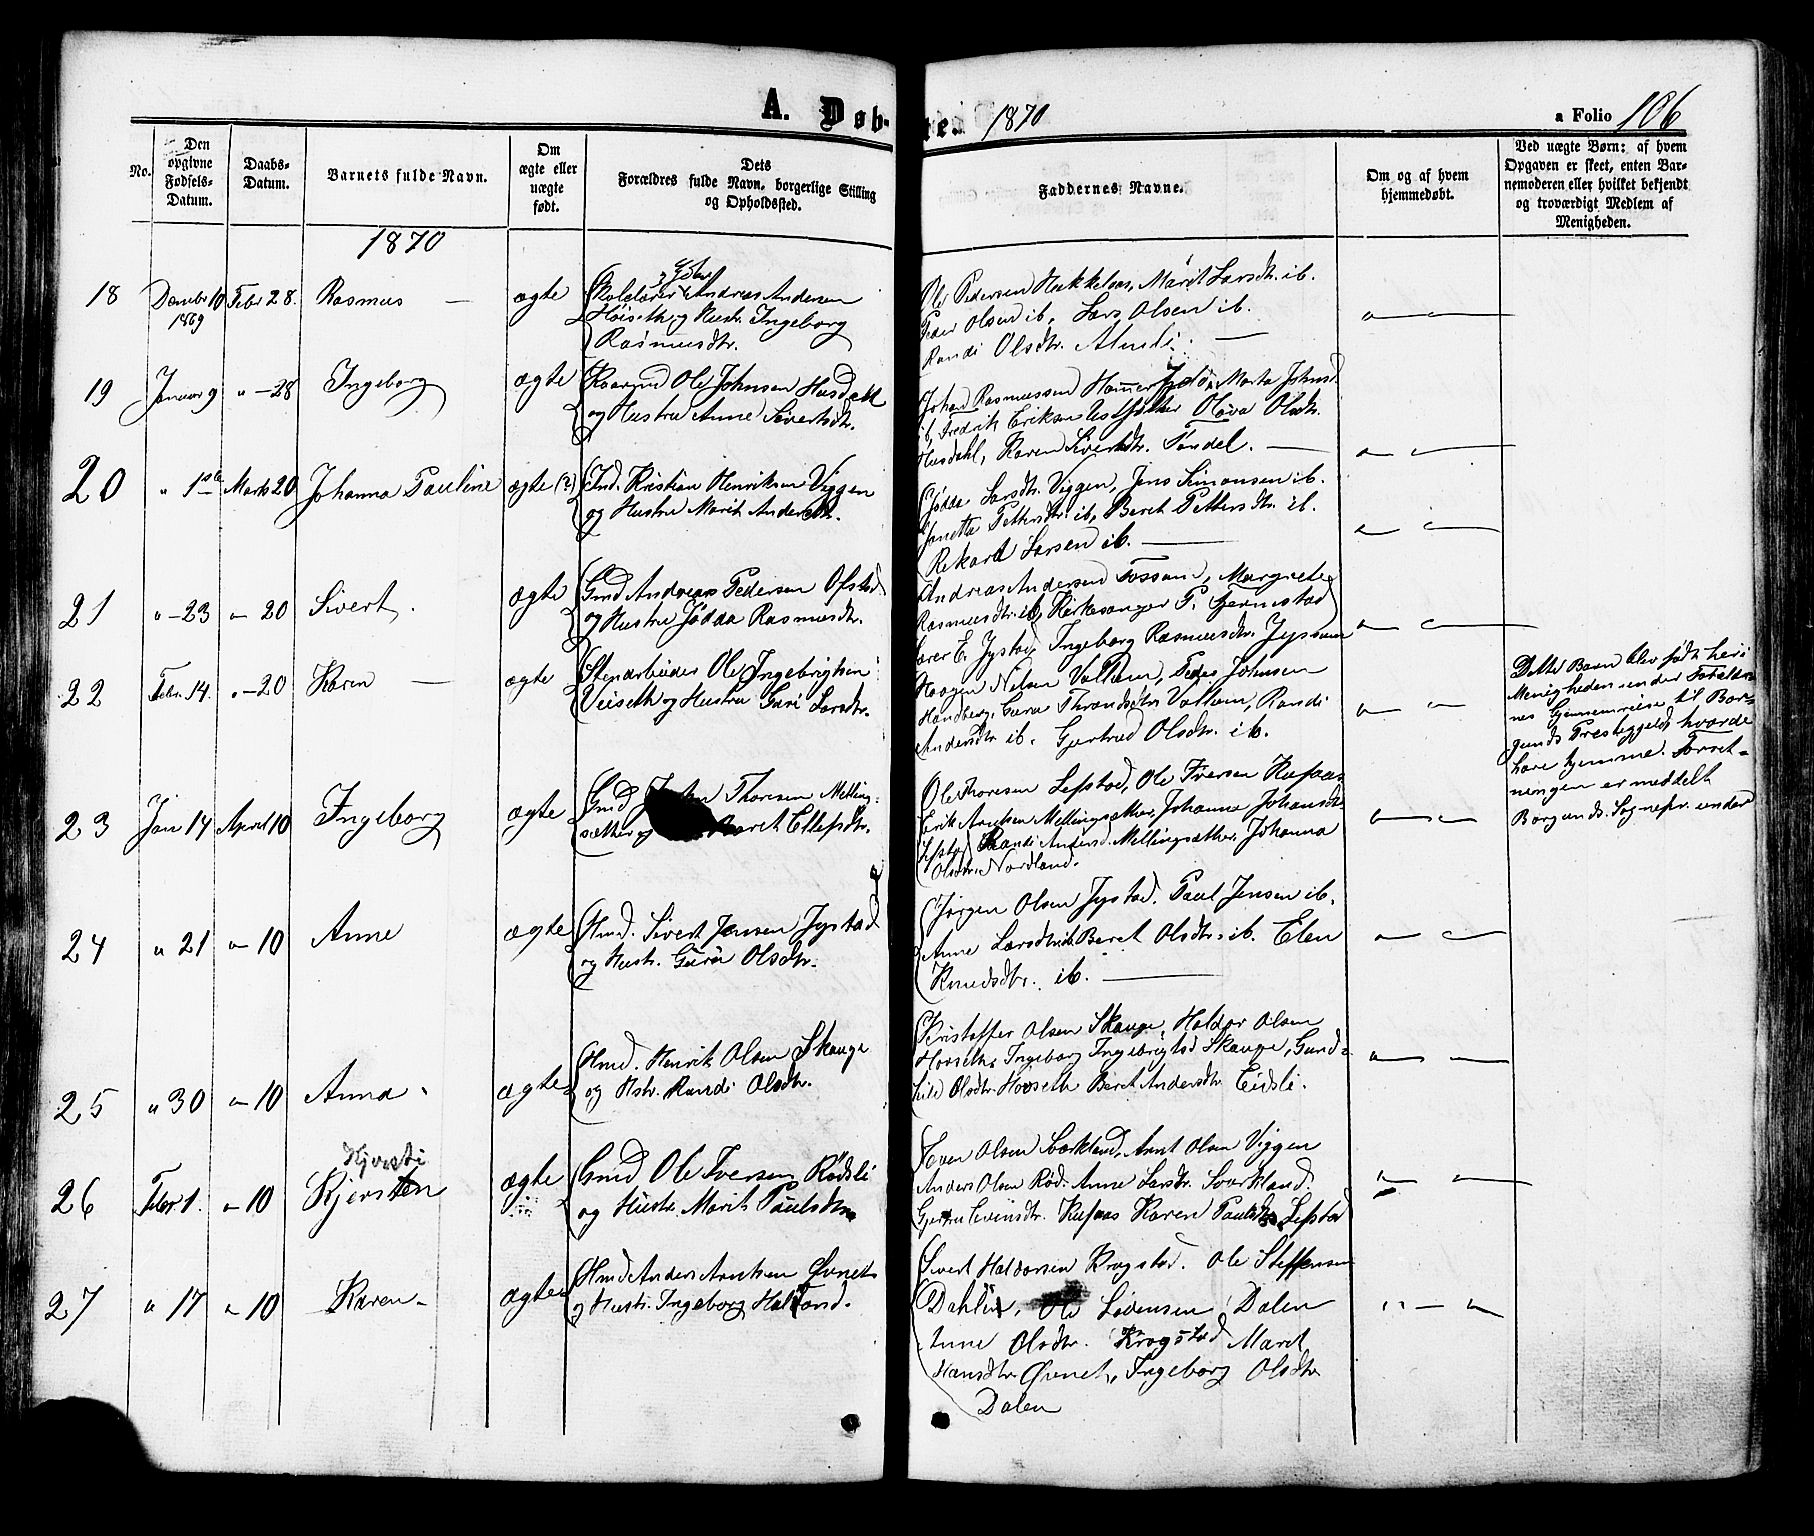 A. Døb-
te. 1870
a Folio 106
No.
Den opgivne Fødsels-Datum.
Daabs-Datum.
Barnets fulde Navn.
Om ægte eller uægte født.
Dets Forældres fulde Navn, borgerlige Stilling og Opholdssted.
Faddernes Navne.
Om og af hvem hjemmedøbt.
Ved uægte Børn: af hvem Opgaven er skeet, enten Barnemoderen eller hvilket bekjendt og troværdigt Medlem af Menigheden.
1870
18 Dcember 10 1869 Febr 28. Rasmus — ægte
Skolelærer Andreas Andersen
Høiseth og Hustr. Ingeborg
Rasmusdtr.
Ole Pedersen Hukkelaas, Marit Larsdtr. ib.
Peder Olsen ib, Lars Olsen ib.
Randi Olsdtr.
19 Januar 9 " — 28 Ingeborg ægte
Ole Johnsen Husdahl
og Hustru Anne Sivertsdtr.
Johan Rasmussen Marta Johnsd.
ib, Fredrik Eriksen Olava Olsdtr.
Husdahl, Karen Sivertsdtr. Tondel. —
20 " 1ste Marts 20 Johanna Pauline ægte (?)
Ind. Kristian Henriksen Viggen
og Hustru Marit Andersdtr.
Gjødda Larsdtr. Viggen, Jens Simonsen ib.
Janetta Pettersdtr. ib, Beret Pettersdtr. ib.
Rekard Larsen ib. —
21 " — 23 " — 20 Sivert. ægte
Gmd Andreas Pedersen Ofstad
og Hustru Jødda Rasmusdtr.
Andreas Andersen Fossum, Margrete
Rasmusdtr. ib, Kirkesanger P. Gjermstad
Lærer E. Jystad, Ingeborg Rasmusdtr.
22 Febr. 14 " — 20 Karen — ægte
Stenarbeider Ole Ingebrigtsen
Viiseth og Hustru Guri Larsdtr.
Haagen Nelsen Valham, Peder Johnsen
Handberg, Guru Throndsdtr. Vallum, Randi
Andersdtr ib. Gjertrud Olsdtr. ib.
Dette Barn blev født her i
Menigheden under Forældre-
nes Gjennemreise til Bor-
gunds Præstegjeld, hvor de
høre hjemme. Forret-
ningen er meddelt
Borgunds Sognepr. under
23 Jan 14 April 10 Ingeborg ægte
Gmd Thoresen Melling-
sæther og Beret Ellefsdtr.
Ole Thoresen Lefstad, Ole Iversen Rufsaas
Erik Arntsen Mellingsæther, Johanna Johansdtr
Lefstad Randi Andersd. Mellingsæther, Johanna
Olsdtr. Nordland.
24 " 21 " — 10 Anne ægte
Hmd. Sivert Jensen Jystad
og Hustr. Guru Olsdtr.
Jørgen Olsen Jystad. Paul Jensen ib.
Anne Larsdtr. ib. Beret Olsdtr. ib. Elen
Knudsdtr. ib. —
25 " 30 " — 10 Anna. ægte
Hmd. Henrik Olsen Skauge
og Hstr. Randi Olsdtr.
Kristoffer Olsen Skauge, Haldor Olsen
Hovseth, Ingeborg Ingebrigtsd Skauge, Gund-
hild Olsdtr. Hovseth Beret Andersdtr Eidsli.
26 Febr 1. " — 10 Kjersti Kjersten ægte
Gmd Ole Iversen Rødsli
og Hustr. Marit Paulsdtr
Even Olsen Svorkland, Arnt Olsen Viggen
Anders Olsen Rød. Anne Larsdtr. Svorkland.
Evensdtr. Karen Paulsdtr. Lefstad
27 " 17 " — 10 Karen. ægte
Hmd Anders Arntsen Øvnet
og Hustr. Ingeborg
Sivert Haldorsen Krogstad. Ole Steffensen
Dahlen, Ole Levensen Dalen
Anne Olsdtr. Krogstad Maret
Hansdtr. Øvnet, Ingeborg Olsdtr
Dalen